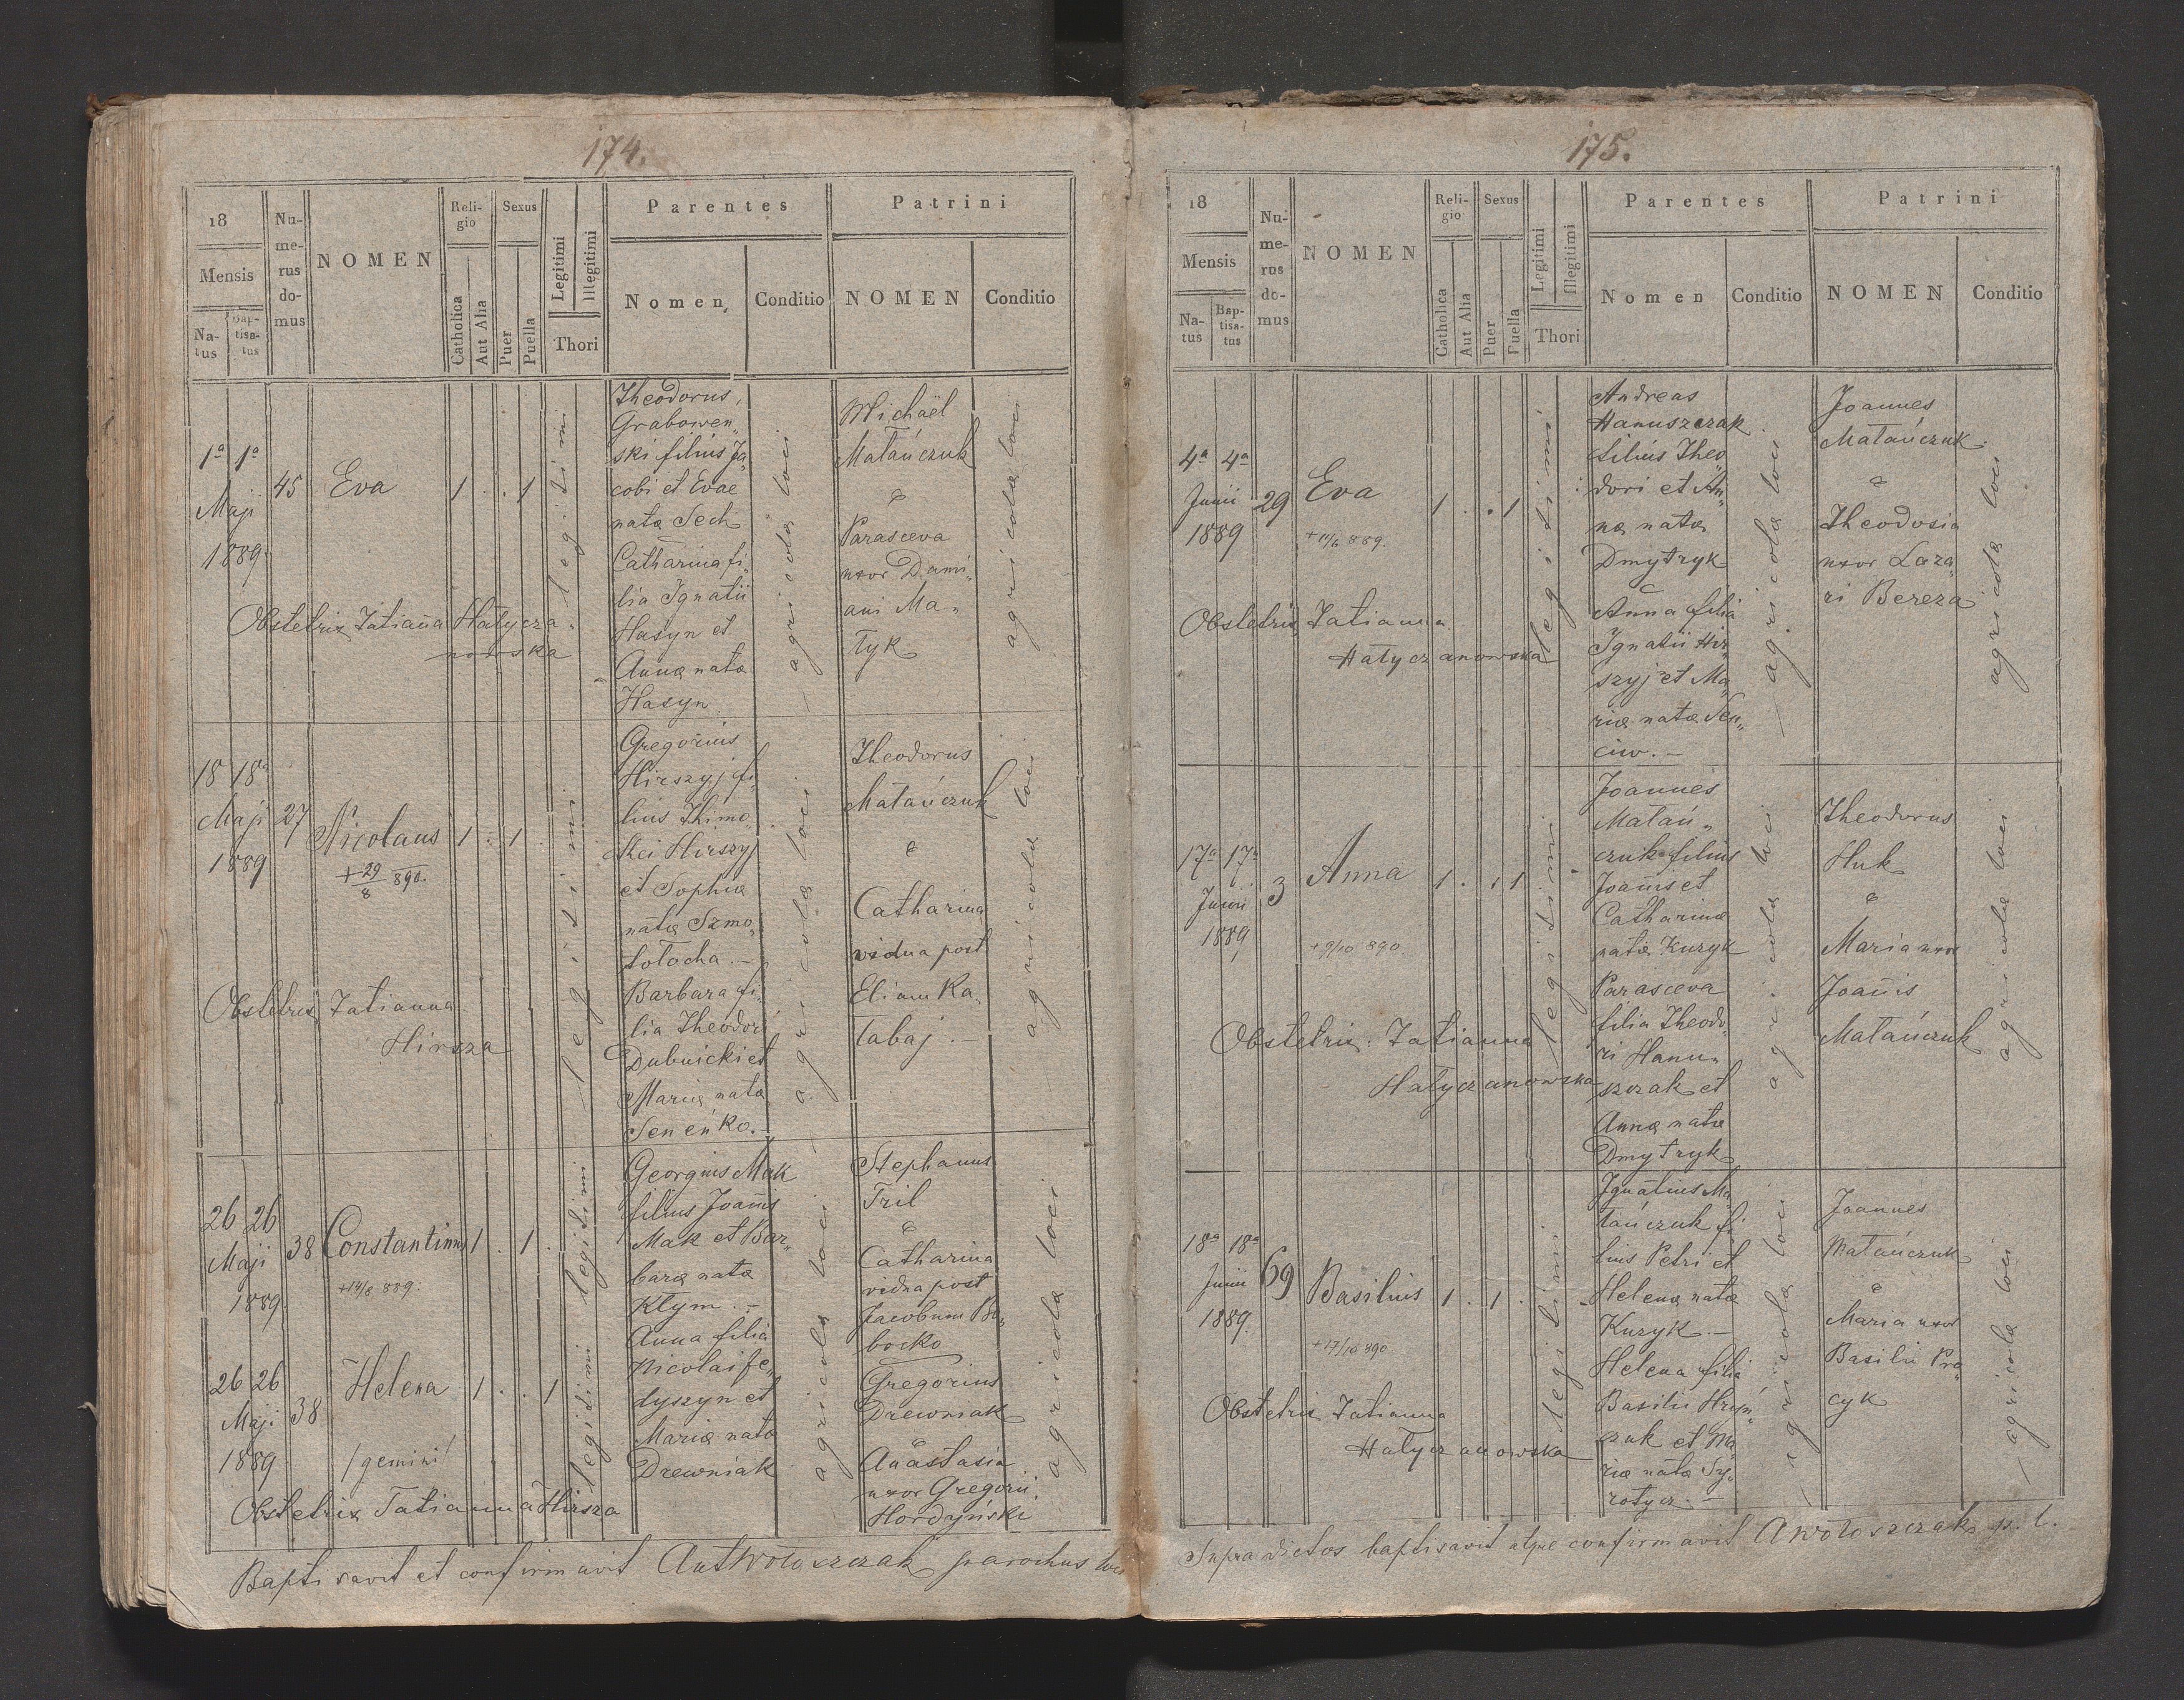 174.
18
Mensis
Na-
tus
Bap-
tisa-
tus
Nu-
me-
rus
do-
mus
NOMEN
Reli-
gio
Catholica
Aut Alia
Sexus
Puer
Puella
Legitimi
Illegitimi
Thori
Parentes
Nomen
Conditio
Patrini
NOMEN
Conditio
1a 1a
Maji
1889.
45
Eva
1 . . 1
legitimi
Theodorus
Grabowen„
ski filius Ja„
cobi et Evae
natæ Sech
Catharina fi„
lia Ignatii
Hasyn et
Annæ natæ
Hasyn
agricolæ loci
Michaël
Matańczuk
&
Parasceva
uxor Dami„
ani Ma„
tyk
agricolæ loci
Obstetrix Tatianna Hałycza„
nowska
18 18a
Maji
1889
27
Nicolaus
+ 29/8 890.
1 . 1 .
legitimi
Gregorius
Hirszyj fi„
lius Thimo„
thei Hirszyj
et Sophiæ
natæ Szmo„
łołocha. –
Barbara fi„
lia Theodori
Dubnicki et
Mariæ natæ
Seneńko. –
agricolæ loci
Theodorus
Matańczuk
&
Catharina
vidua post
Eliam Ka„
tabaj. –
agricolæ loci
Obstetrix Tatianna
Hirsza
26 26
Maji
1889
38
Constantinus
+ 14/8 889.
1 . 1 .
legitimi
Georgius Mak
filius Joannis
Mak et Bar„
baræ natæ
Klym. –
Anna filia
Nicolai Fe„
dyszyn et
Mariæ natæ
Drewniak
agricolæ loci
Stephanus
Tril
&
Catharina
vidua post
Jacobum Bo„
bocko
26 26
Maji
1889
38
Helena
/gemini/
1 . . 1
legitimi
Gregorius
Drewniak
&
Anastasia
uxor Gregorii
Hordyński
agricolæ loci
Obstetrix Tatianna Hirsza
Baptisavit et confirmavit Ant Wołoszczak parochus loci
175.
18
Mensis
Na-
tus
Bap-
tisa-
tus
Nu-
me-
rus
do-
mus
NOMEN
Reli-
gio
Catholica
Aut Alia
Sexus
Puer
Puella
Legitimi
Illegitimi
Thori
Parentes
Nomen
Conditio
Patrini
NOMEN
Conditio
4a 4a
Junii
1889
29
Eva
+ 11/6 889.
1 . . 1
legitimi
Andreas
Hanuszczak
filius Theo„
dori et An„
næ natæ
Dmytryk
&
Anna filia
Ignatii Hir„
szyj et Ma„
riæ natæ Sen„
ciw. –
agricolæ loci
Joannes
Matańczuk
&
Theodosia
uxor Laza„
ri Bereza
agricolæ loci
Obstetrix Tatianna
Hałyczanowska
17a 17a
Junii
1889
3
Anna
+ 9/10 890
1 . . 1
legitimi
Joannes
Matań„
czuk filius
Joannis et
Catharinæ
natæ Kuzyk
Parasceva
filia Theodo„
ri Hanu„
szczak et
Annæ natæ
Dmytryk
agricolæ loci
Theodorus
Huk
&
Maria uxor
Joannis
Matańczuk
agricolæ loci
Obstetrix Tatianna
Hałyczanowska
18a 18a
Junii
1889.
69
Basilius
+ 17/10 890
1 . 1 .
legitimi
Ignatius Ma„
tańczuk fi„
lius Petri et
Helenæ natæ
Kuzyk. –
Helena filia
Basilii Hryń„
czuk et Ma„
riæ natæ Sy„
rotycz. –
agricolæ loci
Joannes
Matańczuk
&
Maria uxor
Basilii Pro„
cyk
agricolæ loci
Obstetrix Tatianna
Hałyczanowska
Supra dictos baptisavit atque confirmavit A Wołoszczak p. l.